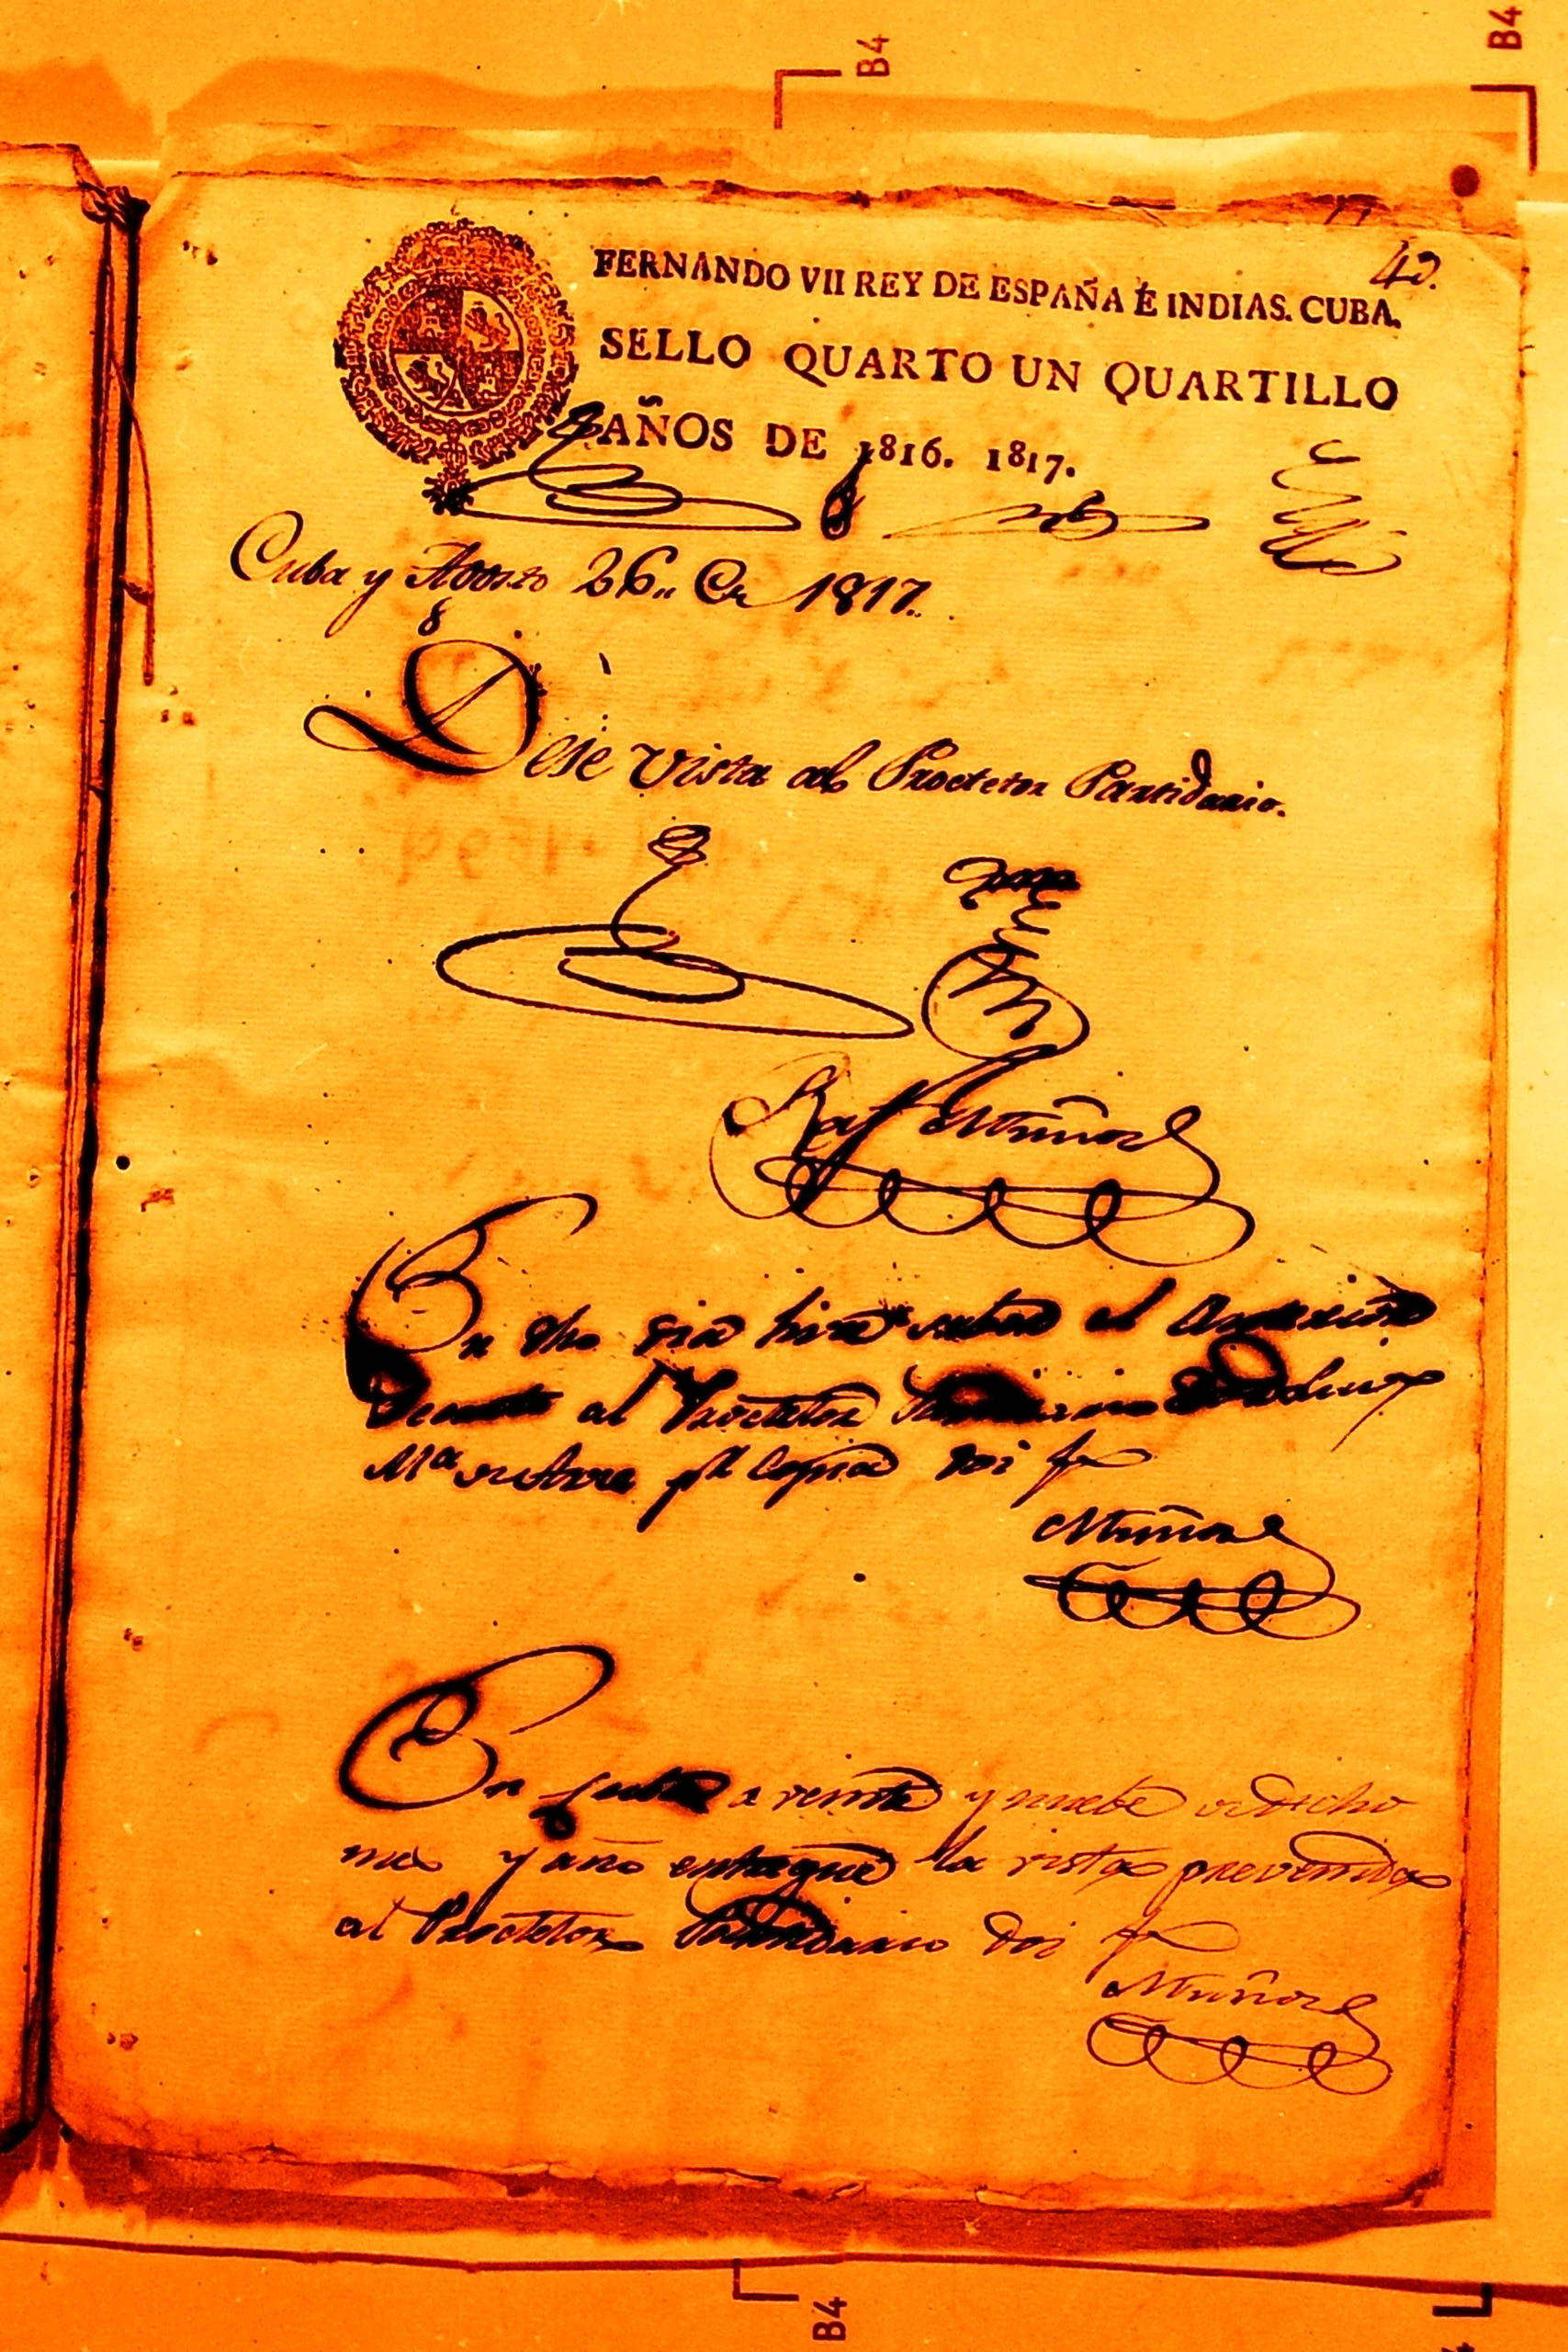 B4
B4
42.
FERNANDO VII REY DE ESPAÑA É INDIAS. CUBA.
SELLO QUARTO UN QUARTILLO
AÑOS DE 1816. 1817.
Cuba y Agosto 26,, de 1817.
Dese vista al Proctetor Partidario.
Raf Muñoz
En dho dia hice saber el anterior
Decreto al Proctetor
Mª pr Copia doi fe
Muñoz
En a veinte y nuebe de dicho
mes y año entregue la vista prevenida
al Proctetor Partidario doi fe
Muñoz
B4